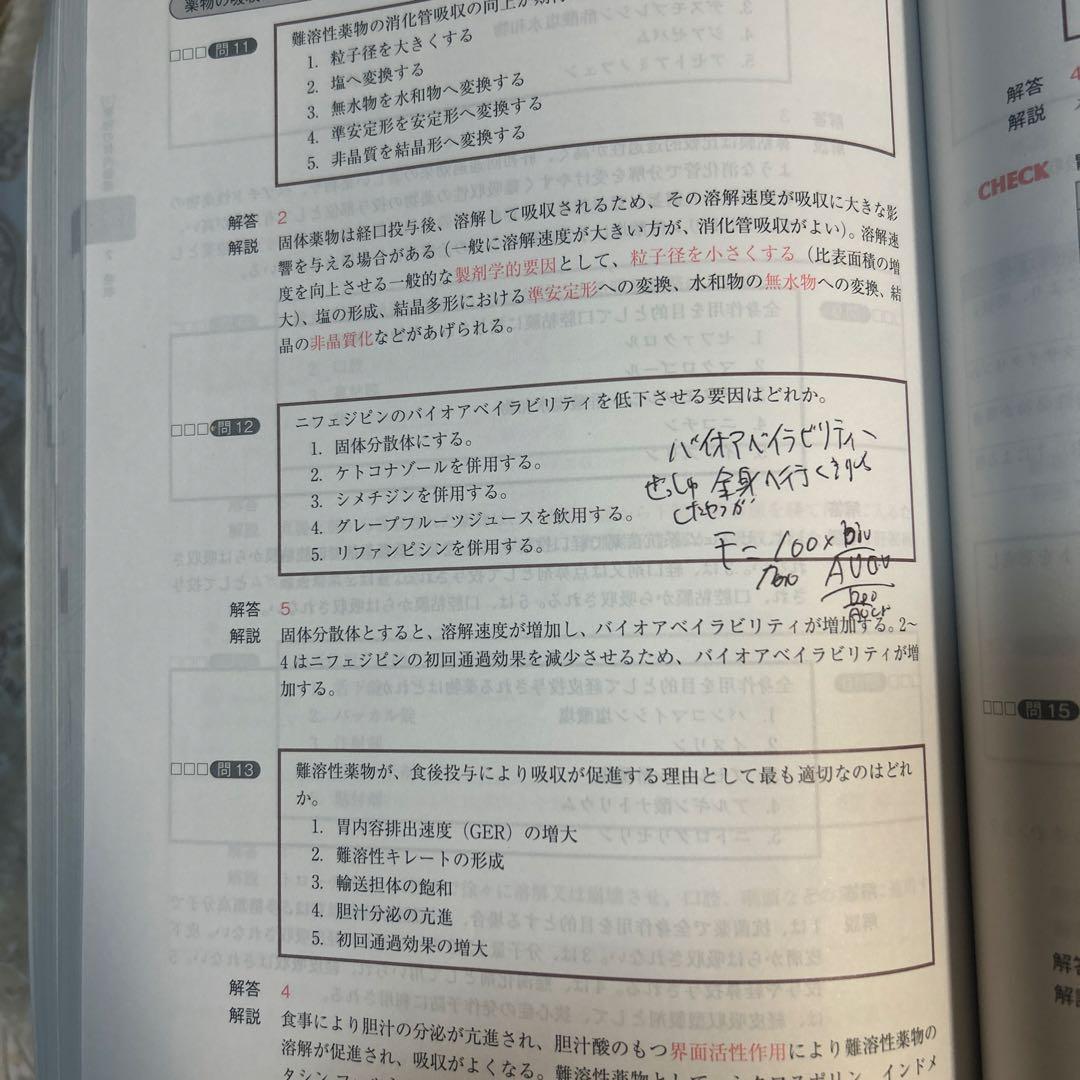 薬物の吸収
難溶性薬物の消化管吸収の向上が
□□□ 問11
1. 粒子径を大きくする
2. 塩へ変換する
3. 無水物を水和物へ変換する
4. 準安定形を安定形へ変換する
5. 非晶質を結晶形へ変換する
解答 2
解説 固体薬物は経口投与後、溶解して吸収されるため、その溶解速度が吸収に大きな影
響を与える場合がある（一般に溶解速度が大きい方が、消化管吸収がよい）。溶解速
度を向上させる一般的な製剤学的要因として、粒子径を小さくする（比表面積の増
大）、塩の形成、結晶多形における準安定形への変換、水和物の無水物への変換、結
晶の非晶質化などがあげられる。
□□□ 問12
ニフェジピンのバイオアベイラビリティを低下させる要因はどれか。
1. 固体分散体にする。
2. ケトコナゾールを併用する。
3. シメチジンを併用する。
4. グレープフルーツジュースを飲用する。
5. リファンピシンを併用する。
バイオアベイラビリティ
全身へ行く
F = 100 ×
解答 5
解説 固体分散体とすると、溶解速度が増加し、バイオアベイラビリティが増加する。2~
4はニフェジピンの初回通過効果を減少させるため、バイオアベイラビリティが増
加する。
□□□ 問13
難溶性薬物が、食後投与により吸収が促進する理由として最も適切なのはどれ
か。
1. 胃内容排出速度（GER）の増大
2. 難溶性キレートの形成
3. 輸送担体の飽和
4. 胆汁分泌の亢進
5. 初回通過効果の増大
解答 4
解説 食事により胆汁の分泌が亢進され、胆汁酸のもつ界面活性作用により難溶性薬物の
溶解が促進され、吸収がよくなる。難溶性薬物として、シクロスポリン、インドメ
解答 4
解説
CHECK
□□□ 問15
解答
解説